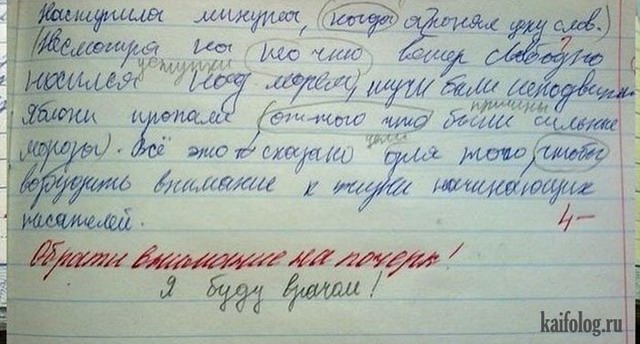 Наступила минута, (когда я понял цену слов.)
(Несмотря на то что ветер свободно
уступки
носился над морем), тучи были неподвижны
причины
Яблони пропали (оттого что были сильные
цели
морозы). Всё это сказано для того, чтобы
возбудить внимание к жизни начинающих
писателей.
4-
Обрати внимание на почерк!
Я буду врачом!
kaifolog.ru